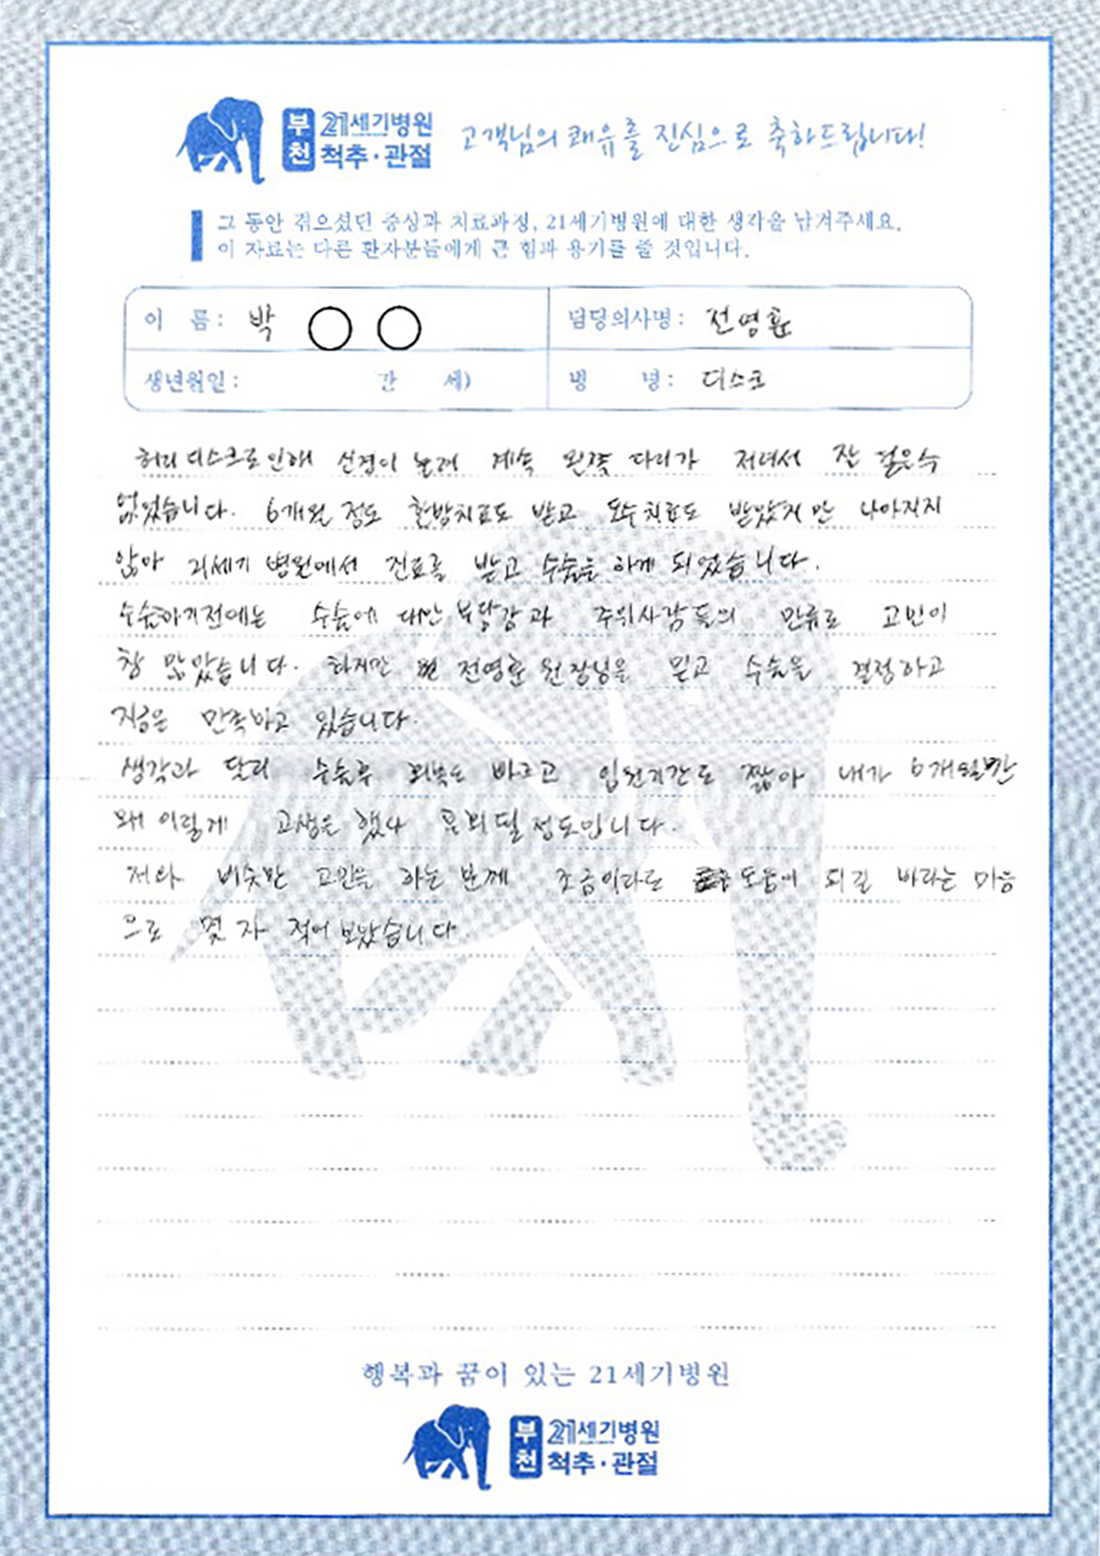 부천 21세기병원 척추·관절 고객님의 쾌유를 진심으로 축하드립니다!
그 동안 겪으셨던 증상과 치료과정, 21세기병원에 대한 생각을 남겨주세요.
이 자료는 다른 환자분들에게 큰 힘과 용기를 줄 것입니다.
이 름 : 박 ○ ○ 담당의사명 : 전영훈
생년월일 : 세) 병 명 : 디스크
허리 디스크로 인해 신경이 눌려 계속 왼쪽 다리가 저녀서 잘 걸을수
없었습니다. 6개월 정도 한방치료도 받고 도수치료도 받았지만 나아지지
않아 21세기 병원에서 진료를 받고 수술을 하게 되었습니다.
수술하기전에는 수술에 대한 부담감과 주위사람들의 만류로 고민이
참 많았습니다. 하지만 전영훈 원장님을 믿고 수술을 결정하고
지금은 만족하고 있습니다.
생각과 달리 수술후 회복도 빠르고 입원기간도 짧아 내가 6개월만
왜 이렇게 고생을 했나 후회될 정도입니다.
저와 비슷한 고민을 하는 분께 조금이라도 도움이 되길 바라는 마음
으로 몇 자 적어 보았습니다.
행복과 꿈이 있는 21세기병원
부천 21세기병원 척추·관절